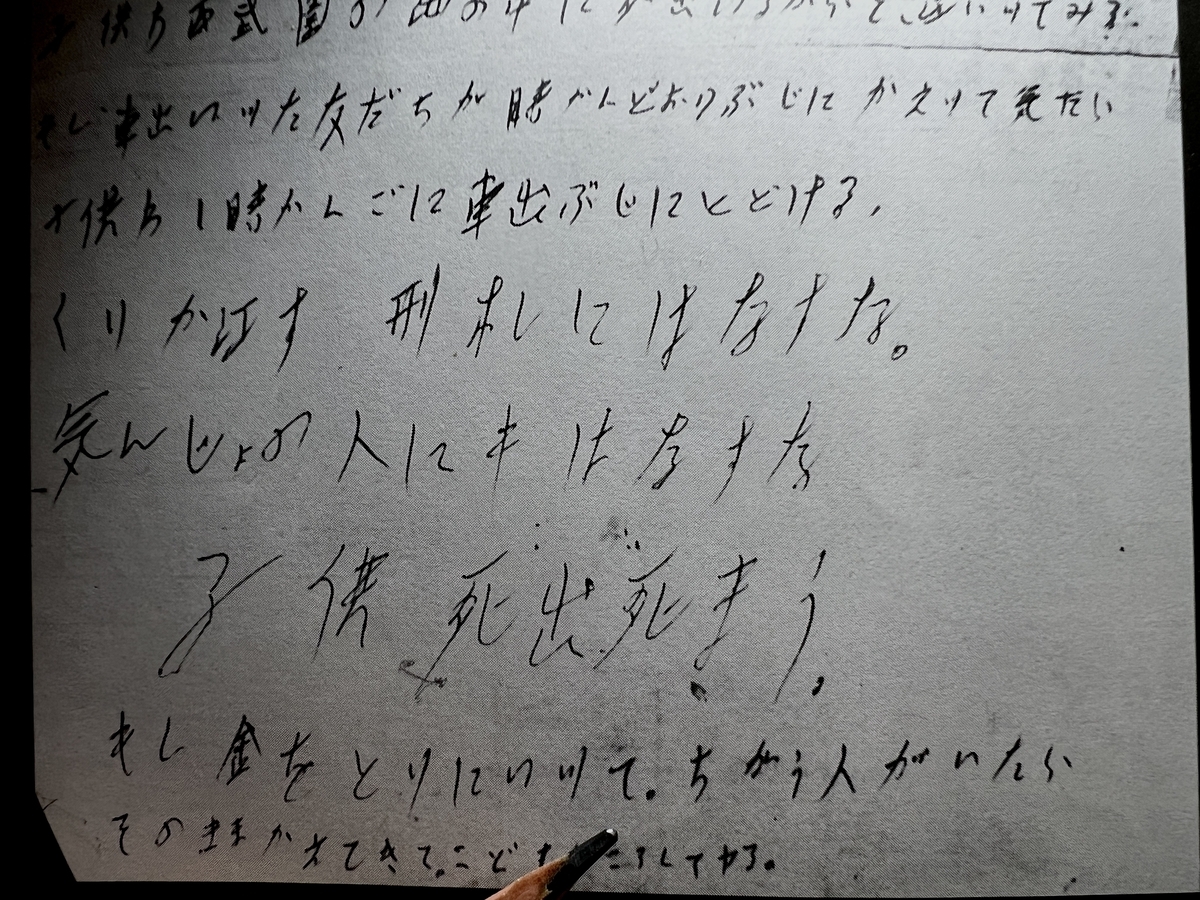 子供わ西武園の池の中に死出いるからそこ江いツてみろ。
もし車出いツた友だちが時かんどおりぶじにかえツて気たら
子供わ1時かんごに車出ぶじにとどける,
くりか江す 刑札にはなすな。
気んじょの人にもはなすな
子供死出死まう。
もし金をとりにいツて。ちがう人がいたら
そのままかえてきて。こども ころしてヤる。